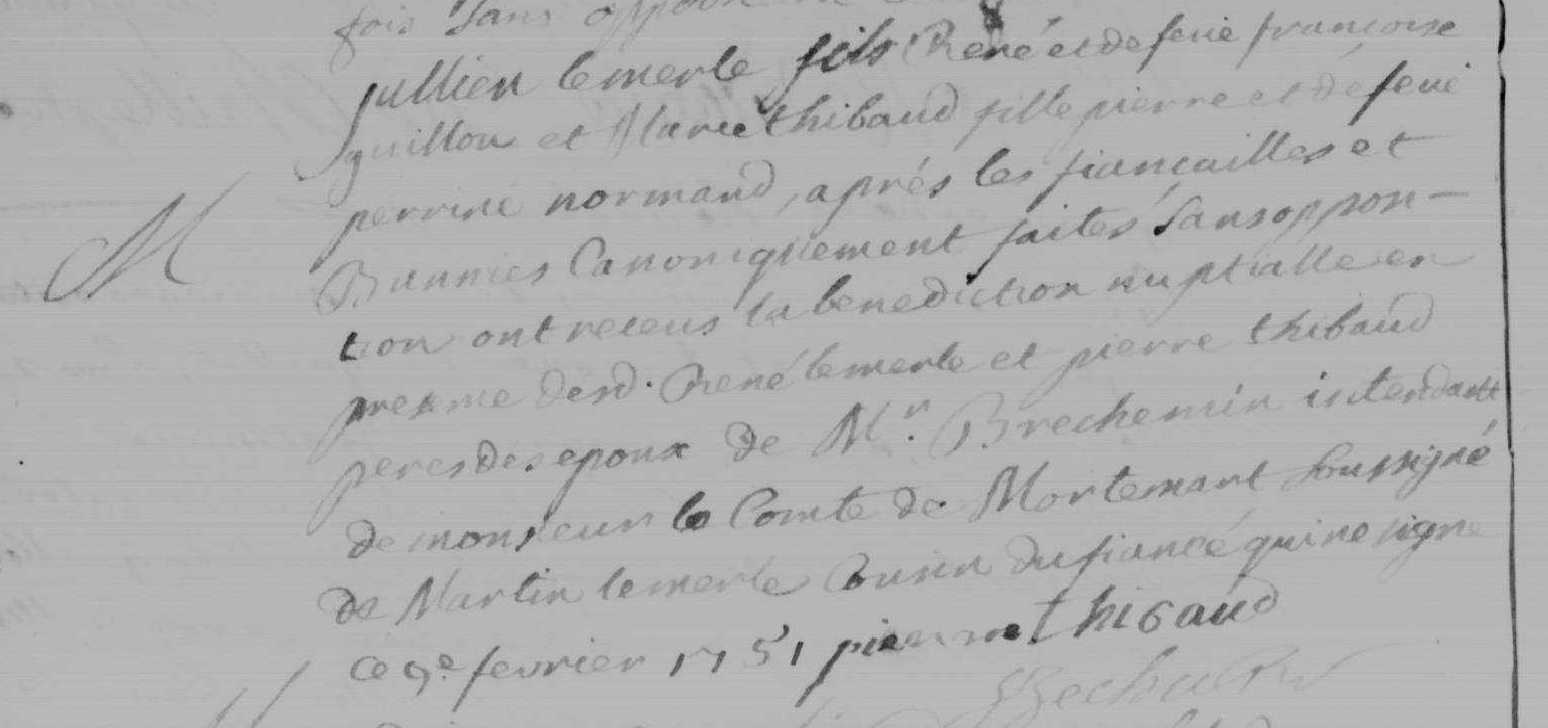 fois sans
jullien lemerle fils René et de feue françoise
guillon et Marie thibaud fille pierre et de feue
perrine normand, aprés les fiançailles et
M
Bannies Canoniquement faites sans opposi-
tion ont receus la benediction nuptialle en
presence desd. René lemerle et pierre thibaud
peres des epoux de Mr. Brechemin intendant
de monsieur le Comte de Mortemart soussigné
de Martin lemerle Cousin du fiancé qui ne signe
ce 9e fevrier 1751 pierre thibaud